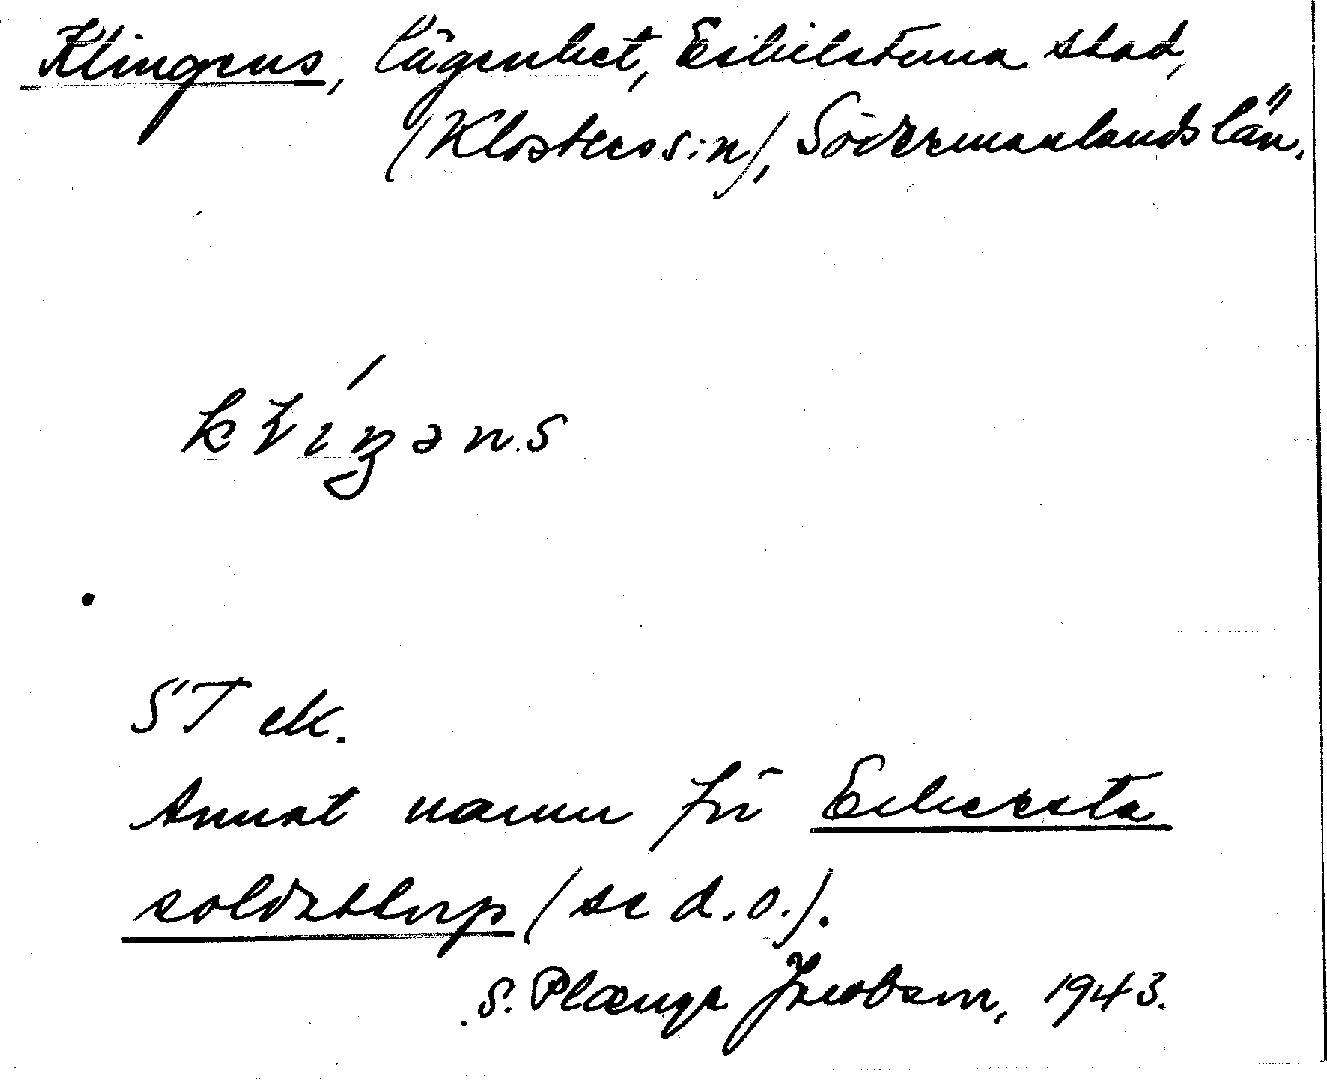 Klingens, lägenhet, Eskilstuna stad,
(Klosters s:n), Södermanlands län.
klíŋəns
ST ek.
Annat namn för Ekersta
soldattorp (se d.o.).
S. Plænge Jacobson, 1943.